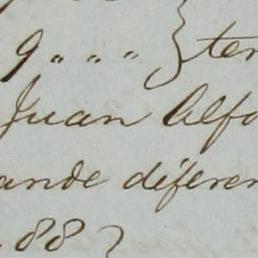 9 " " " } ter
Juan Alfo
ande diferen
.882